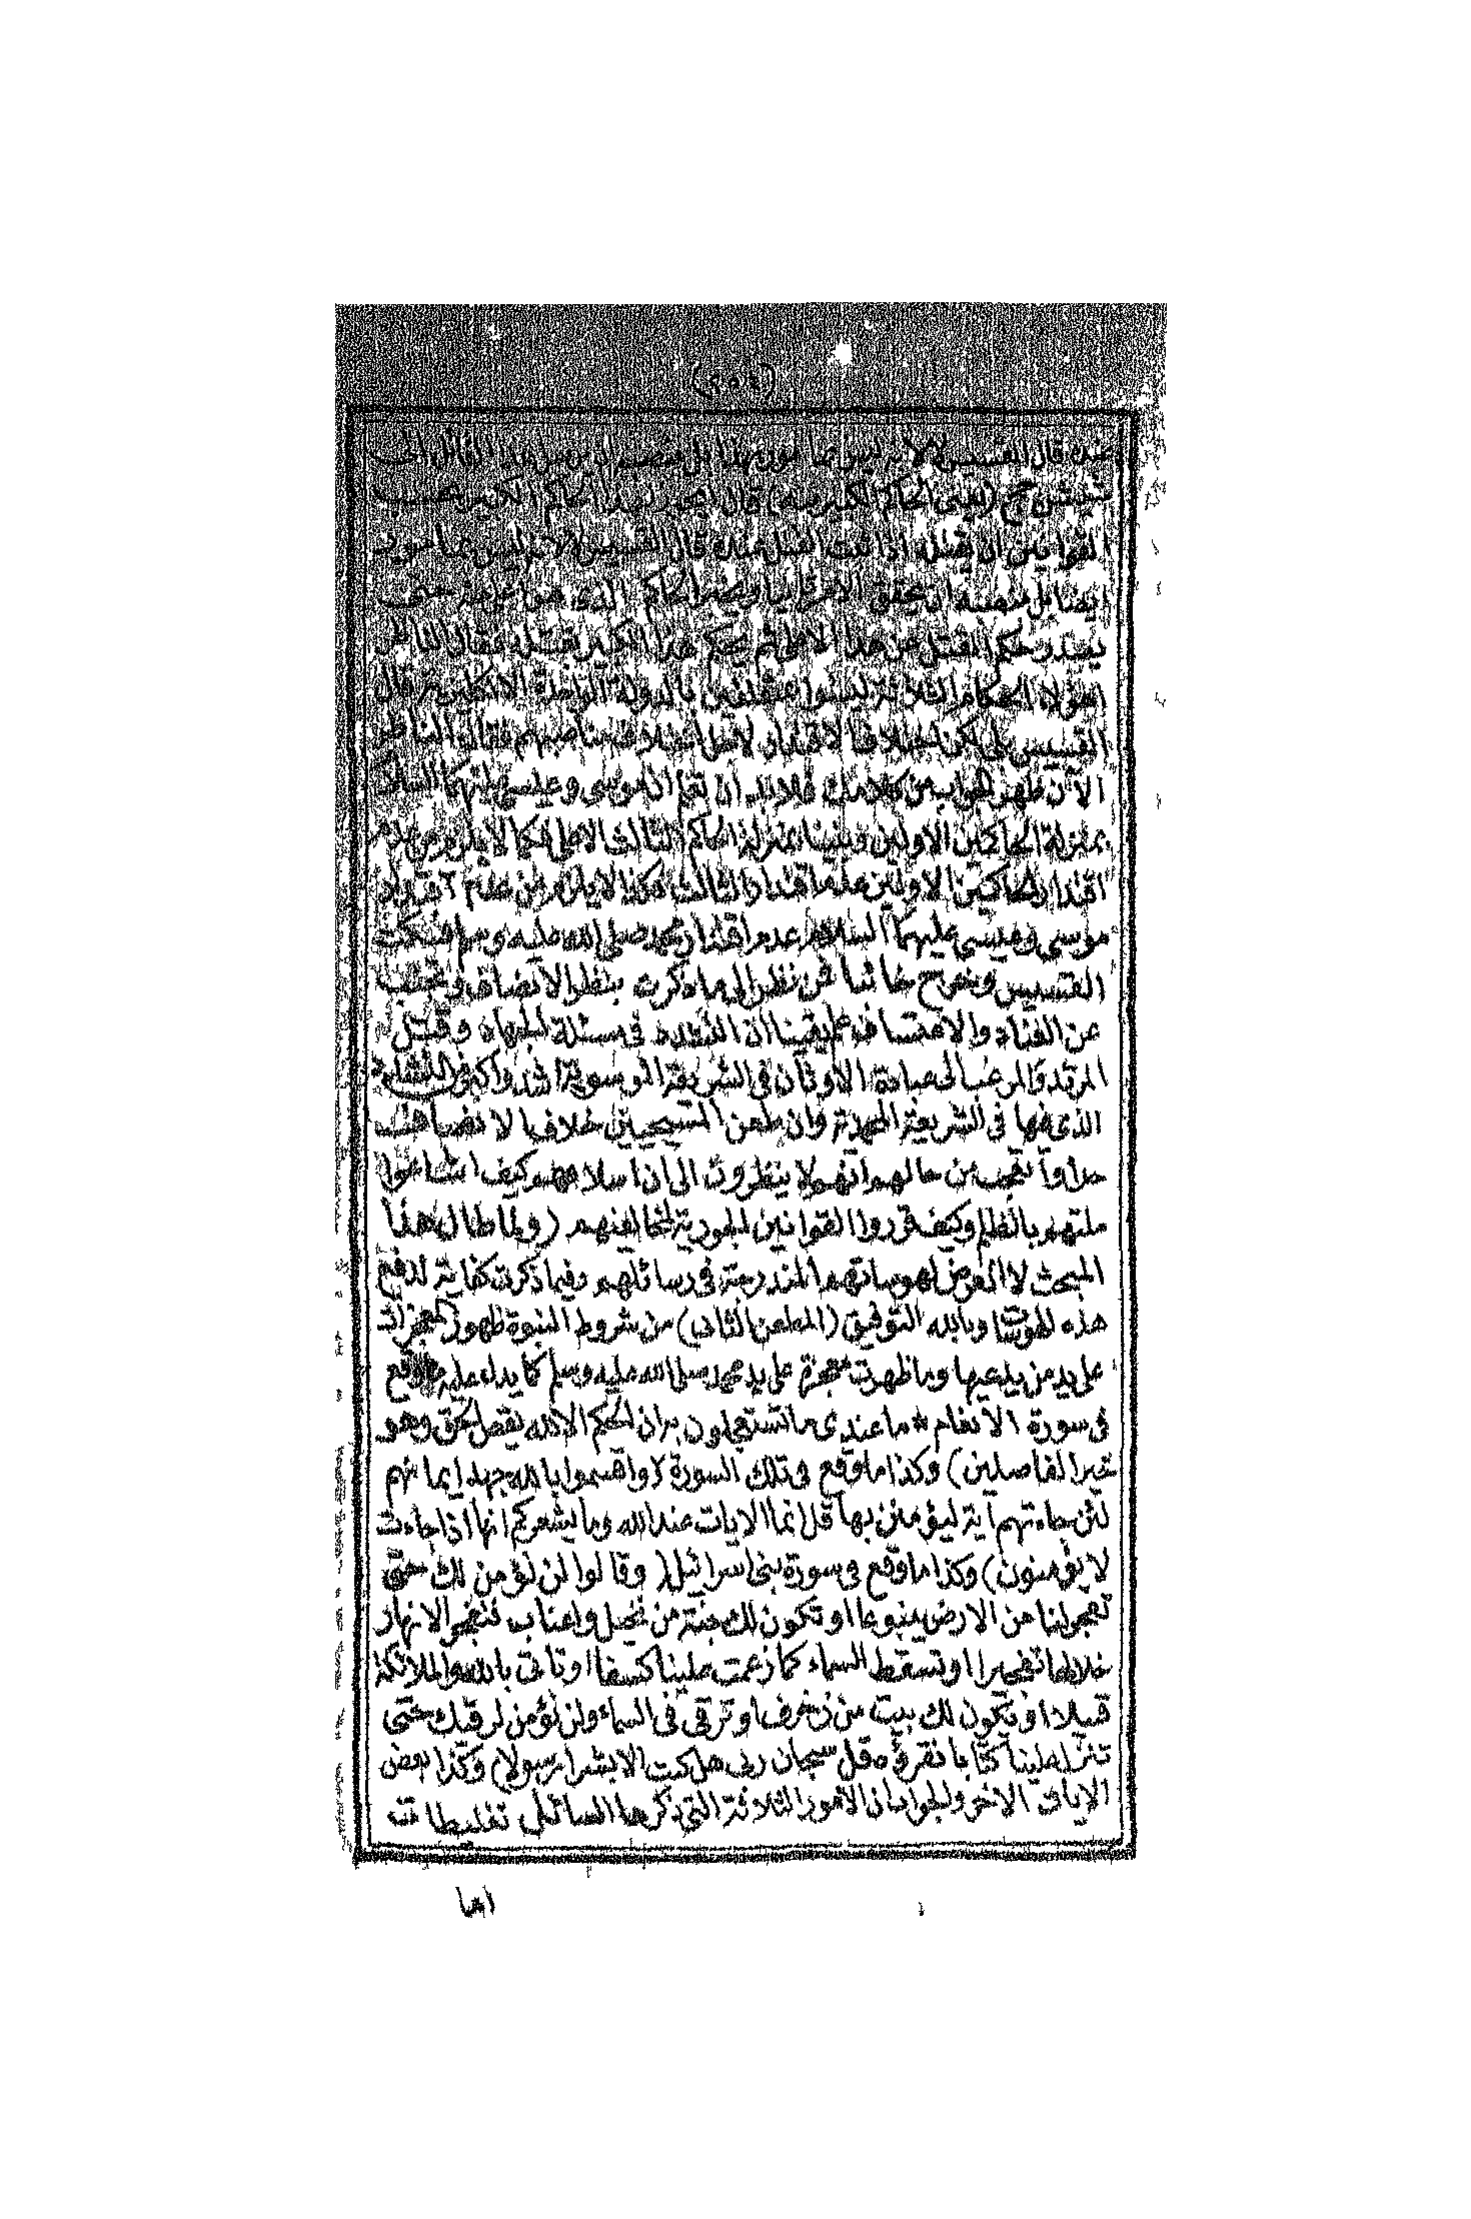 (٢٥٤)
عنده قال القسيس لا لانه ليس بمأمور بهذا بل منصبه ان يرسل هذا القاتل الى
(يعني الحاكم الكبير منه) قال ايجوز لهذا الحاكم الكبير بحسب
القوانين ان يقتله اذا ثبت القتل عنده قال القسيس لا لانه ليس بمأمور
ايضا بل منصبه ان يحقق الامر ثانيا ويخبر الحاكم الذي هو اعلى منه حتى
يصدر حكم القتل من هذا الاعلى ثم يحكم هذا الكبير بقتله فقال الناظر
اهؤلاء الحكام الثلاثة ليسوا بمتعلقين بالدولة الواحدة الانكليزية قال
القسيس بلى لكن اختلاف الاقتدار لاجل اختلاف مناصبهم فقال الناظر
الآن ظهر الجواب من كلامك فلا بد ان تعلم ان موسى وعيسى عليهما السلام
بمنزلة الحاكمين الاولين ونبينا بمنزلة الحاكم الثالث الاعلى فكما لا يلزم من عدم
اقتدار الحاكمين الاولين عدم اقتدار الثالث فكذا لا يلزم من عدم اقتدار
موسى وعيسى عليهما السلام عدم اقتدار محمد صلى الله عليه وسلم فسكت
القسيس وخرج خائبا فمن نظر الى ما ذكرت بنظر الانصاف وتجنب
عن العناد والاعتساف علم يقينا ان التشدد في مسئلة الجهاد وقتل
المرتد والمرغب الى عبادة الاوثان في الشريعة الموسوية اشد واكثر من التشدد
الذي فيها في الشريعة المحمدية وان طعن المسيحيين خلاف الانصاف
جدا واتعجب من حالهم انهم لا ينظرون الى ان اسلافهم كيف اشاعوا
ملتهم بالظلم وكيف قرروا القوانين الجورية لمخالفيهم (ولما طال هذا
المبحث لا اتعرض لهوساتهم المندرجة في رسائلهم وفيما ذكرت كفاية لدفع
هذه الهوسات وبالله التوفيق (المطعن الثاني) من شروط النبوة ظهور المعجزات
على يد من يدعيها وما ظهرت معجزة على يد محمد صلى الله عليه وسلم كما يدل عليه ما وقع
في سورة الانعام * ما عندي ما تستعجلون به ان الحكم الا لله يقص الحق وهو
خير الفاصلين) وكذا ما وقع في تلك السورة (واقسموا بالله جهد ايمانهم
لئن جاءتهم آية ليؤمنن بها قل انما الايات عند الله وما يشعركم انها اذا جاءت
لا يؤمنون) وكذا ما وقع في سورة بني اسرائيل (وقالوا لن نؤمن لك حتى
تفجر لنا من الارض ينبوعا او تكون لك جنة من نخيل واعناب فتفجر الانهار
خلالها تفجيرا او تسقط السماء كما زعمت علينا كسفا او تاتي بالله والملائكة
قبيلا او يكون لك بيت من زخرف او ترقى في السماء ولن نؤمن لرقيك حتى
تنزل علينا كتابا نقرؤه قل سبحان ربي هل كنت الا بشرا رسولا) وكذا بعض
الايات الاخر والجواب ان الامور الثلاثة التي ذكرها السائل تغليطات
اما